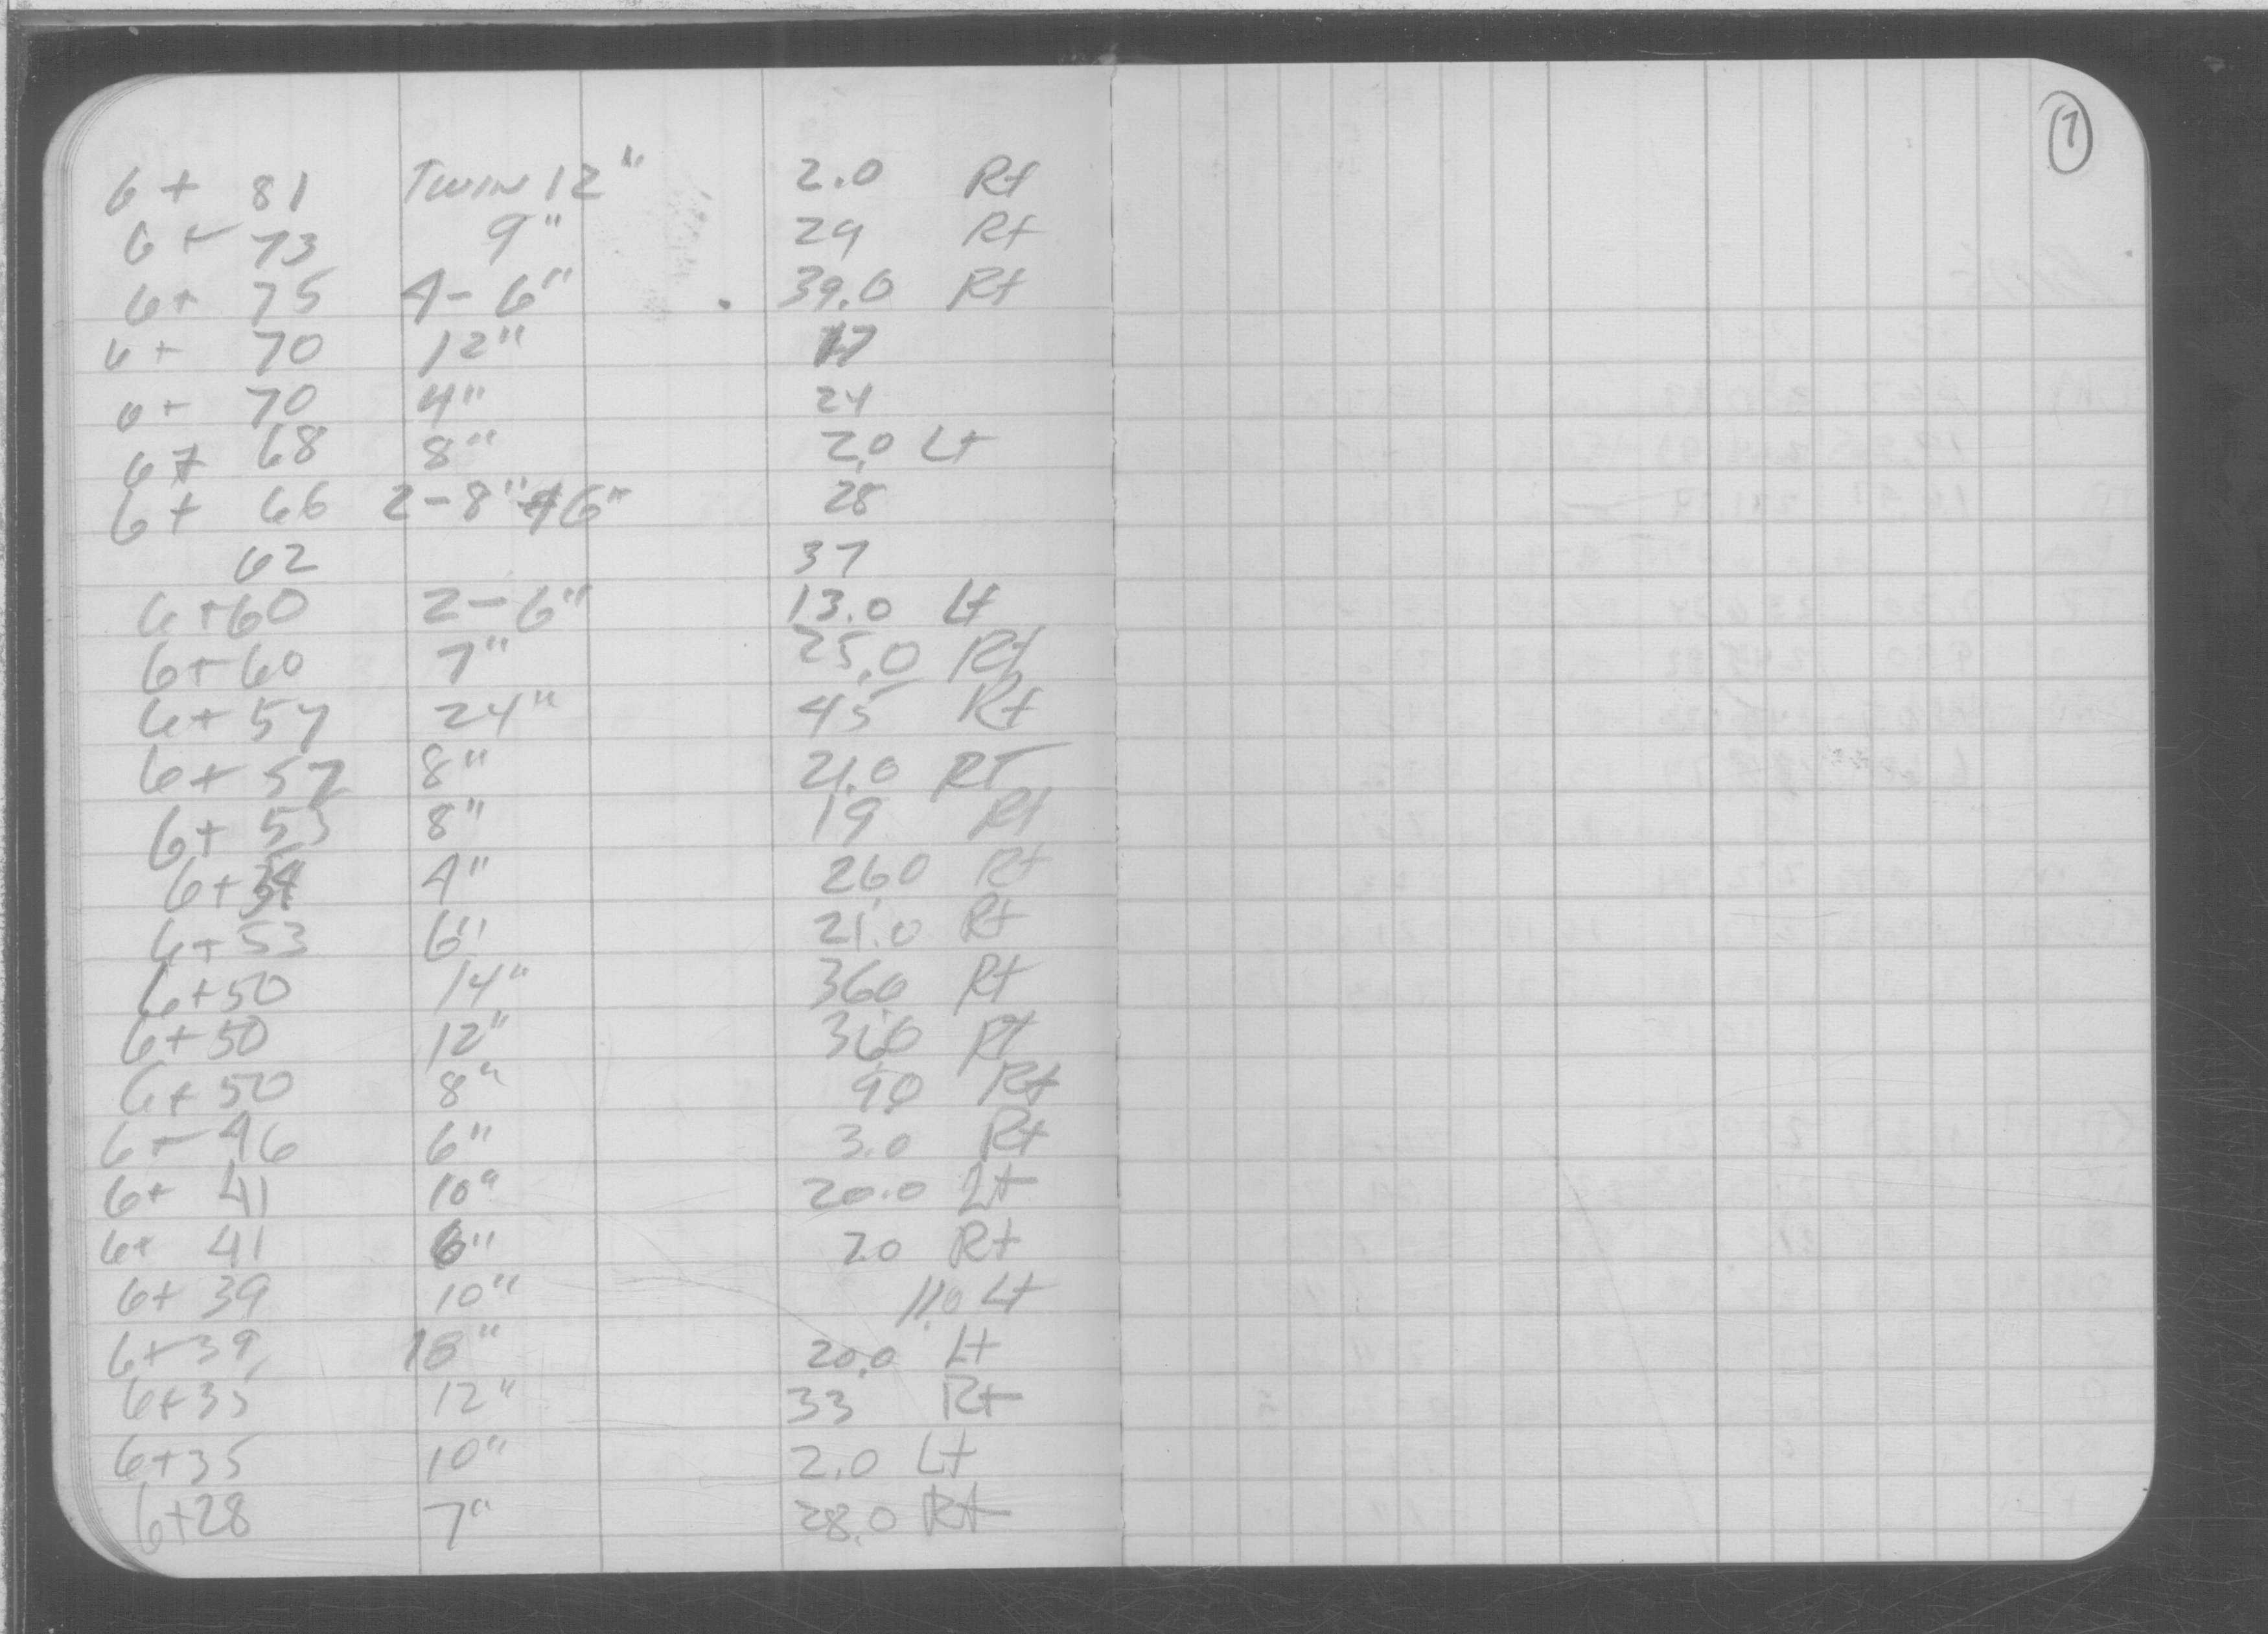 7
6 + 81 TWIN 12" 2.0 Rt
6 + 73 9" 29 Rt
6 + 75 4 - 6" 39.0 Rt
6 + 70 12" 17
6 + 70 4" 24
6 + 68 8" 2.0 Lt
6 + 66 2 - 8" 6" 28
62 37
6 + 60 2 - 6" 13.0 Lt
6 + 60 7" 25.0 Rt
6 + 57 24" 45 Rt
6 + 57 8" 21.0 RT
6 + 53 8" 19 Rt
6 + 4" 26.0 Rt
6 + 53 6" 21.0 Rt
6 + 50 14" 36.0 Rt
6 + 50 12" 36.0 Rt
6 + 50 8" 9.0 Rt
6 + 46 6" 3.0 Rt
6 + 41 10" 20.0 Lt
6 + 41 6" 7.0 Rt
6 + 39 10" 11.0 Lt
6 + 39 18" 20.0 Lt
6 + 35 12" 33 Rt
6 + 35 10" 2.0 Lt
6 + 28 7" 28.0 Rt